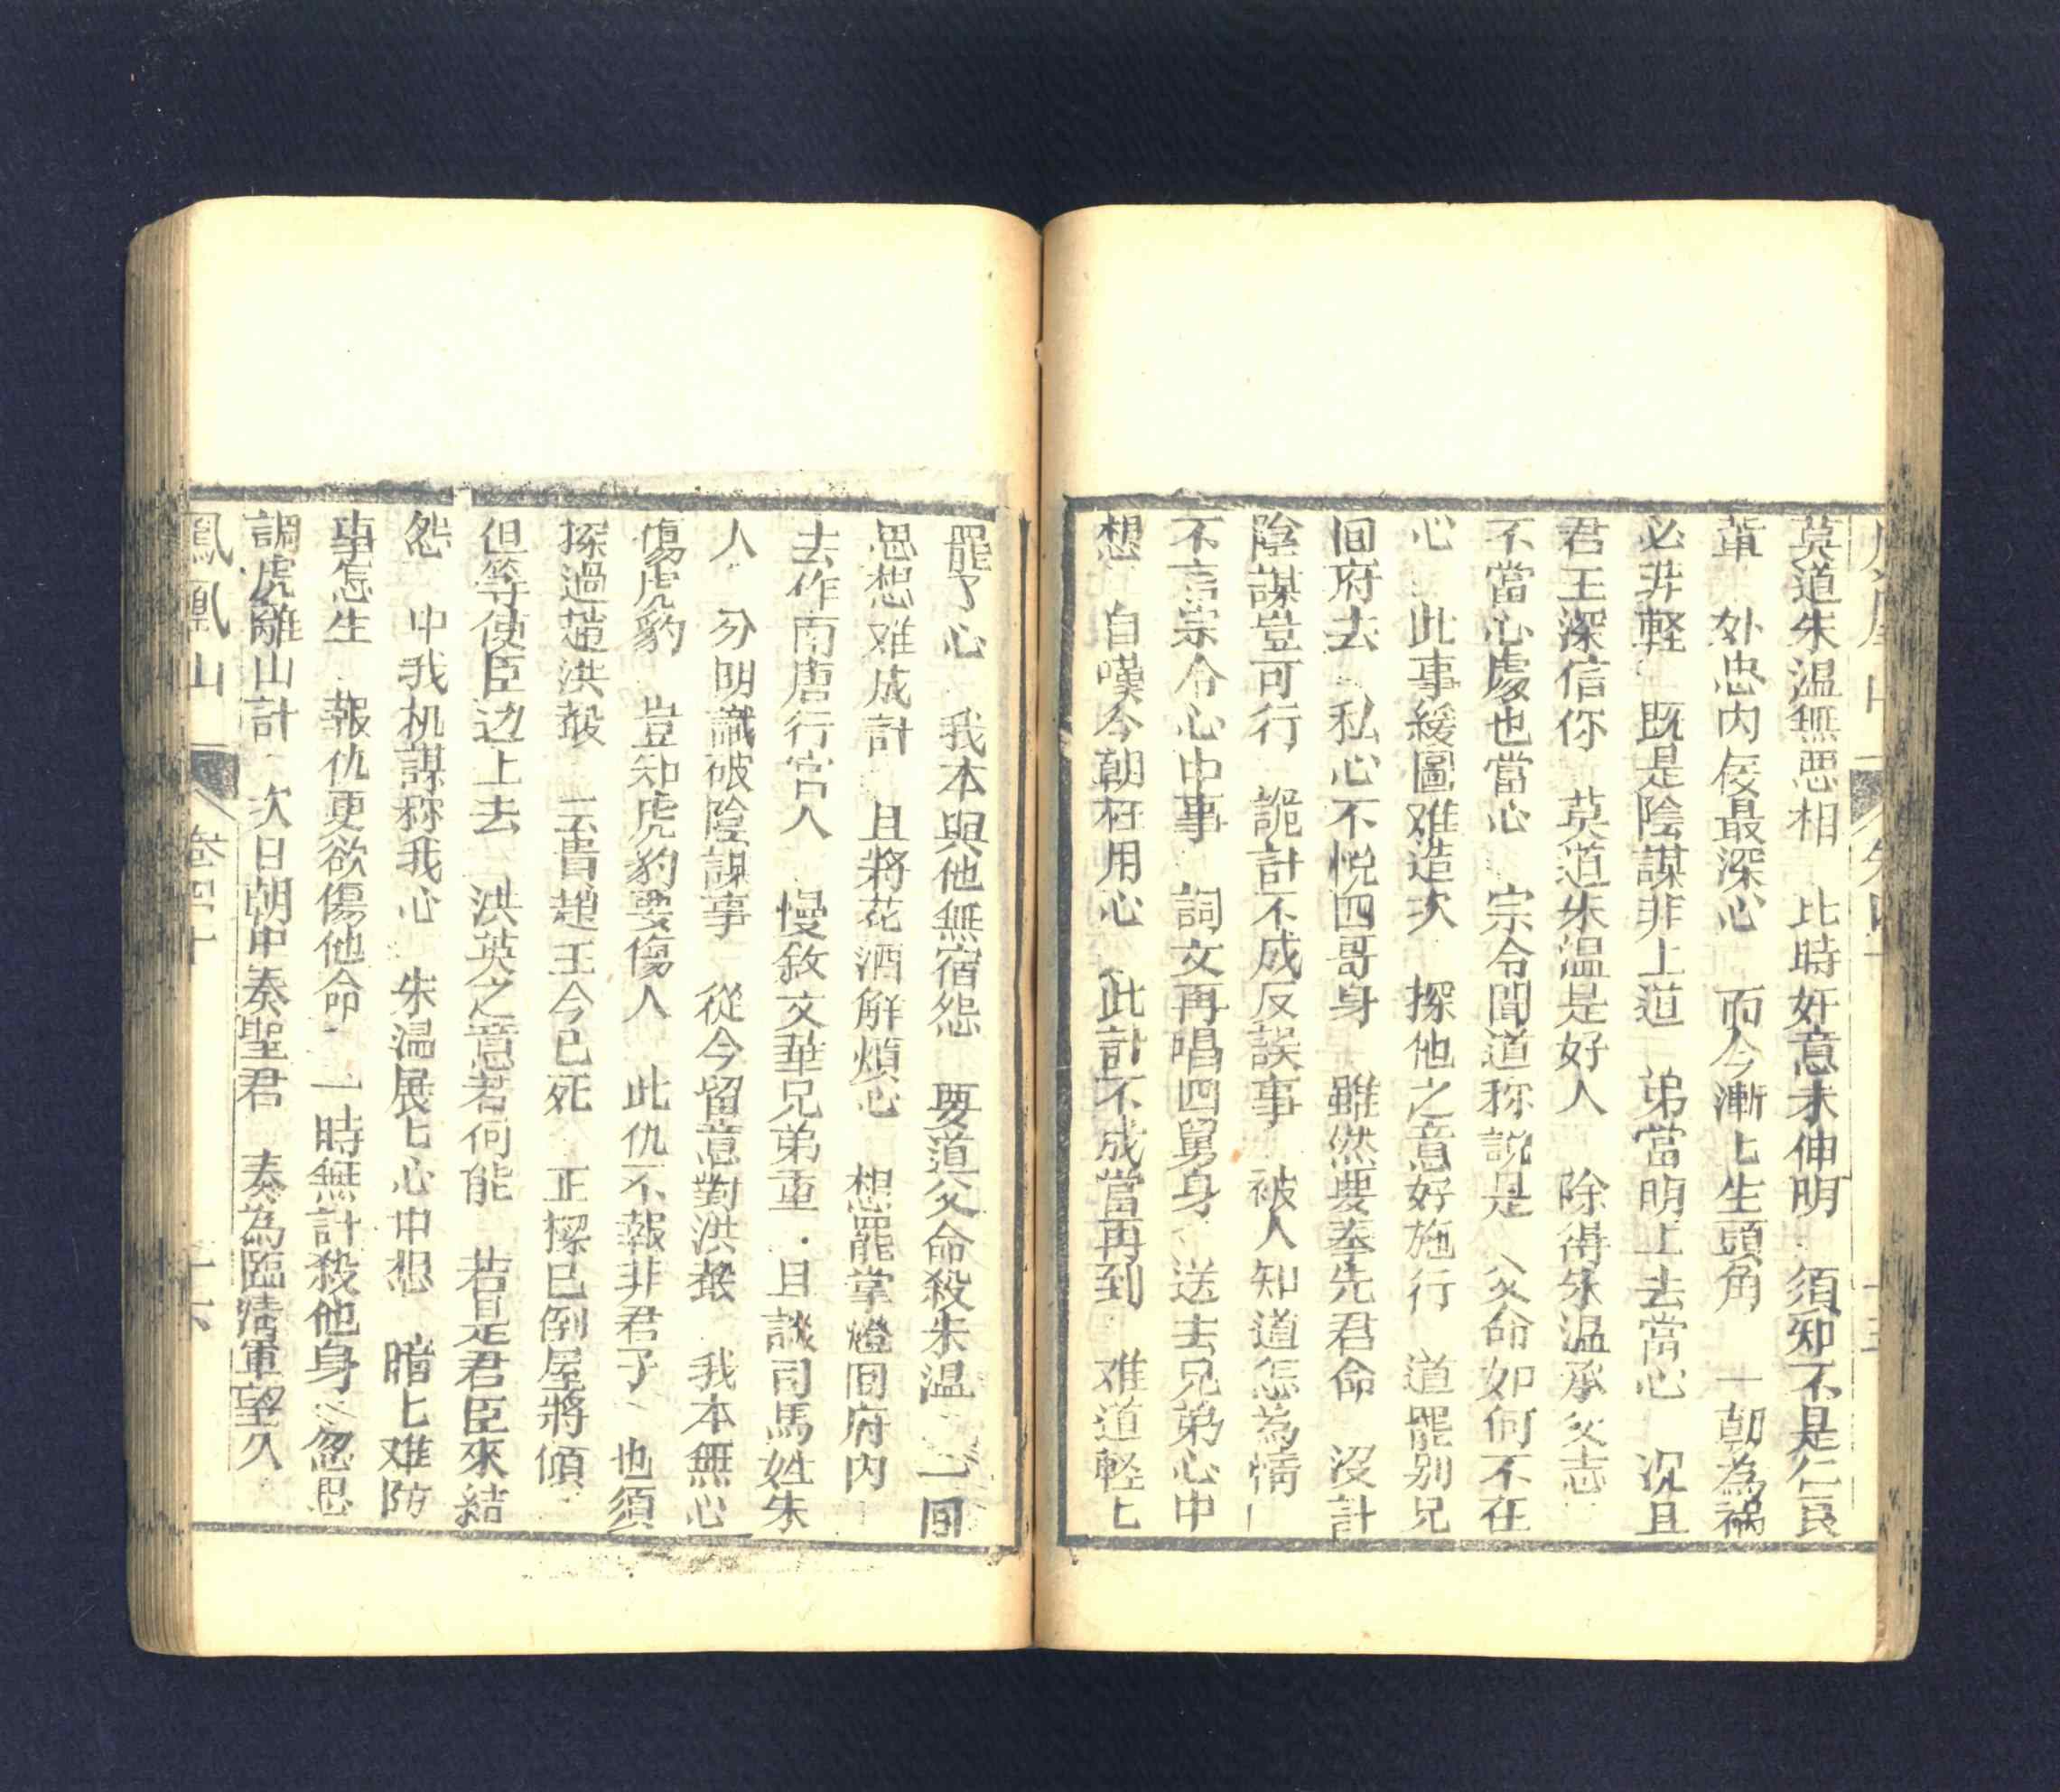 莫道朱温無恶相　比時奸意未伸明　須知不是仁良
軰　外忠内佞最深心　而今漸匕生頭角　一朝為祸
必非軽　既是陰謀非上道　弟當明上去當心　况且
君王深信你　莫道朱温是好人　除得朱温承父志
不當心處也當心　宗令聞道称説是　父命如何不在
心　此事緩圖难造次　探他之意好施行　道罷别兄
囬府去　私心不悦四哥身　雖然要奉先君命　沒計
陰謀豈可行　詭計不成反誤事　被人知道怎為情
不言宗令心中事　詞文再唱四舅身　送去兄弟心中
想　自嘆今朝枉用心　此計不成當再到　难道軽匕
罷了心　我本與他無宿怨　要道父命殺朱温　一囬
思想难成計　且將花酒解煩心　想罷掌燈囬府内
去作南唐行宫人　慢敘文華兄弟重　且談司馬姓朱
人　分明識破陰謀事　從今留意對洪毅　我本無心
傷虎豹　豈知虎豹要傷人　此仇不報非君子　也須
探過趙洪毅　云書趙王今已死　正樑已倒屋將傾
但等使臣边上去　洪英之意君何能　若是君臣來結
怨　中我机謀称我心　朱温展匕心中想　暗匕难防
事怎生　報仇更欲傷他命　一時無計殺他身　忽思
調虎離山計　次日朝中奏聖君　奏為臨清軍望久
鳳凰山　卷四十　十六